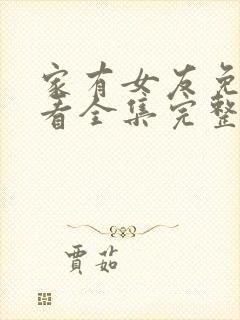 家有女友免
看全集完整
贾茹